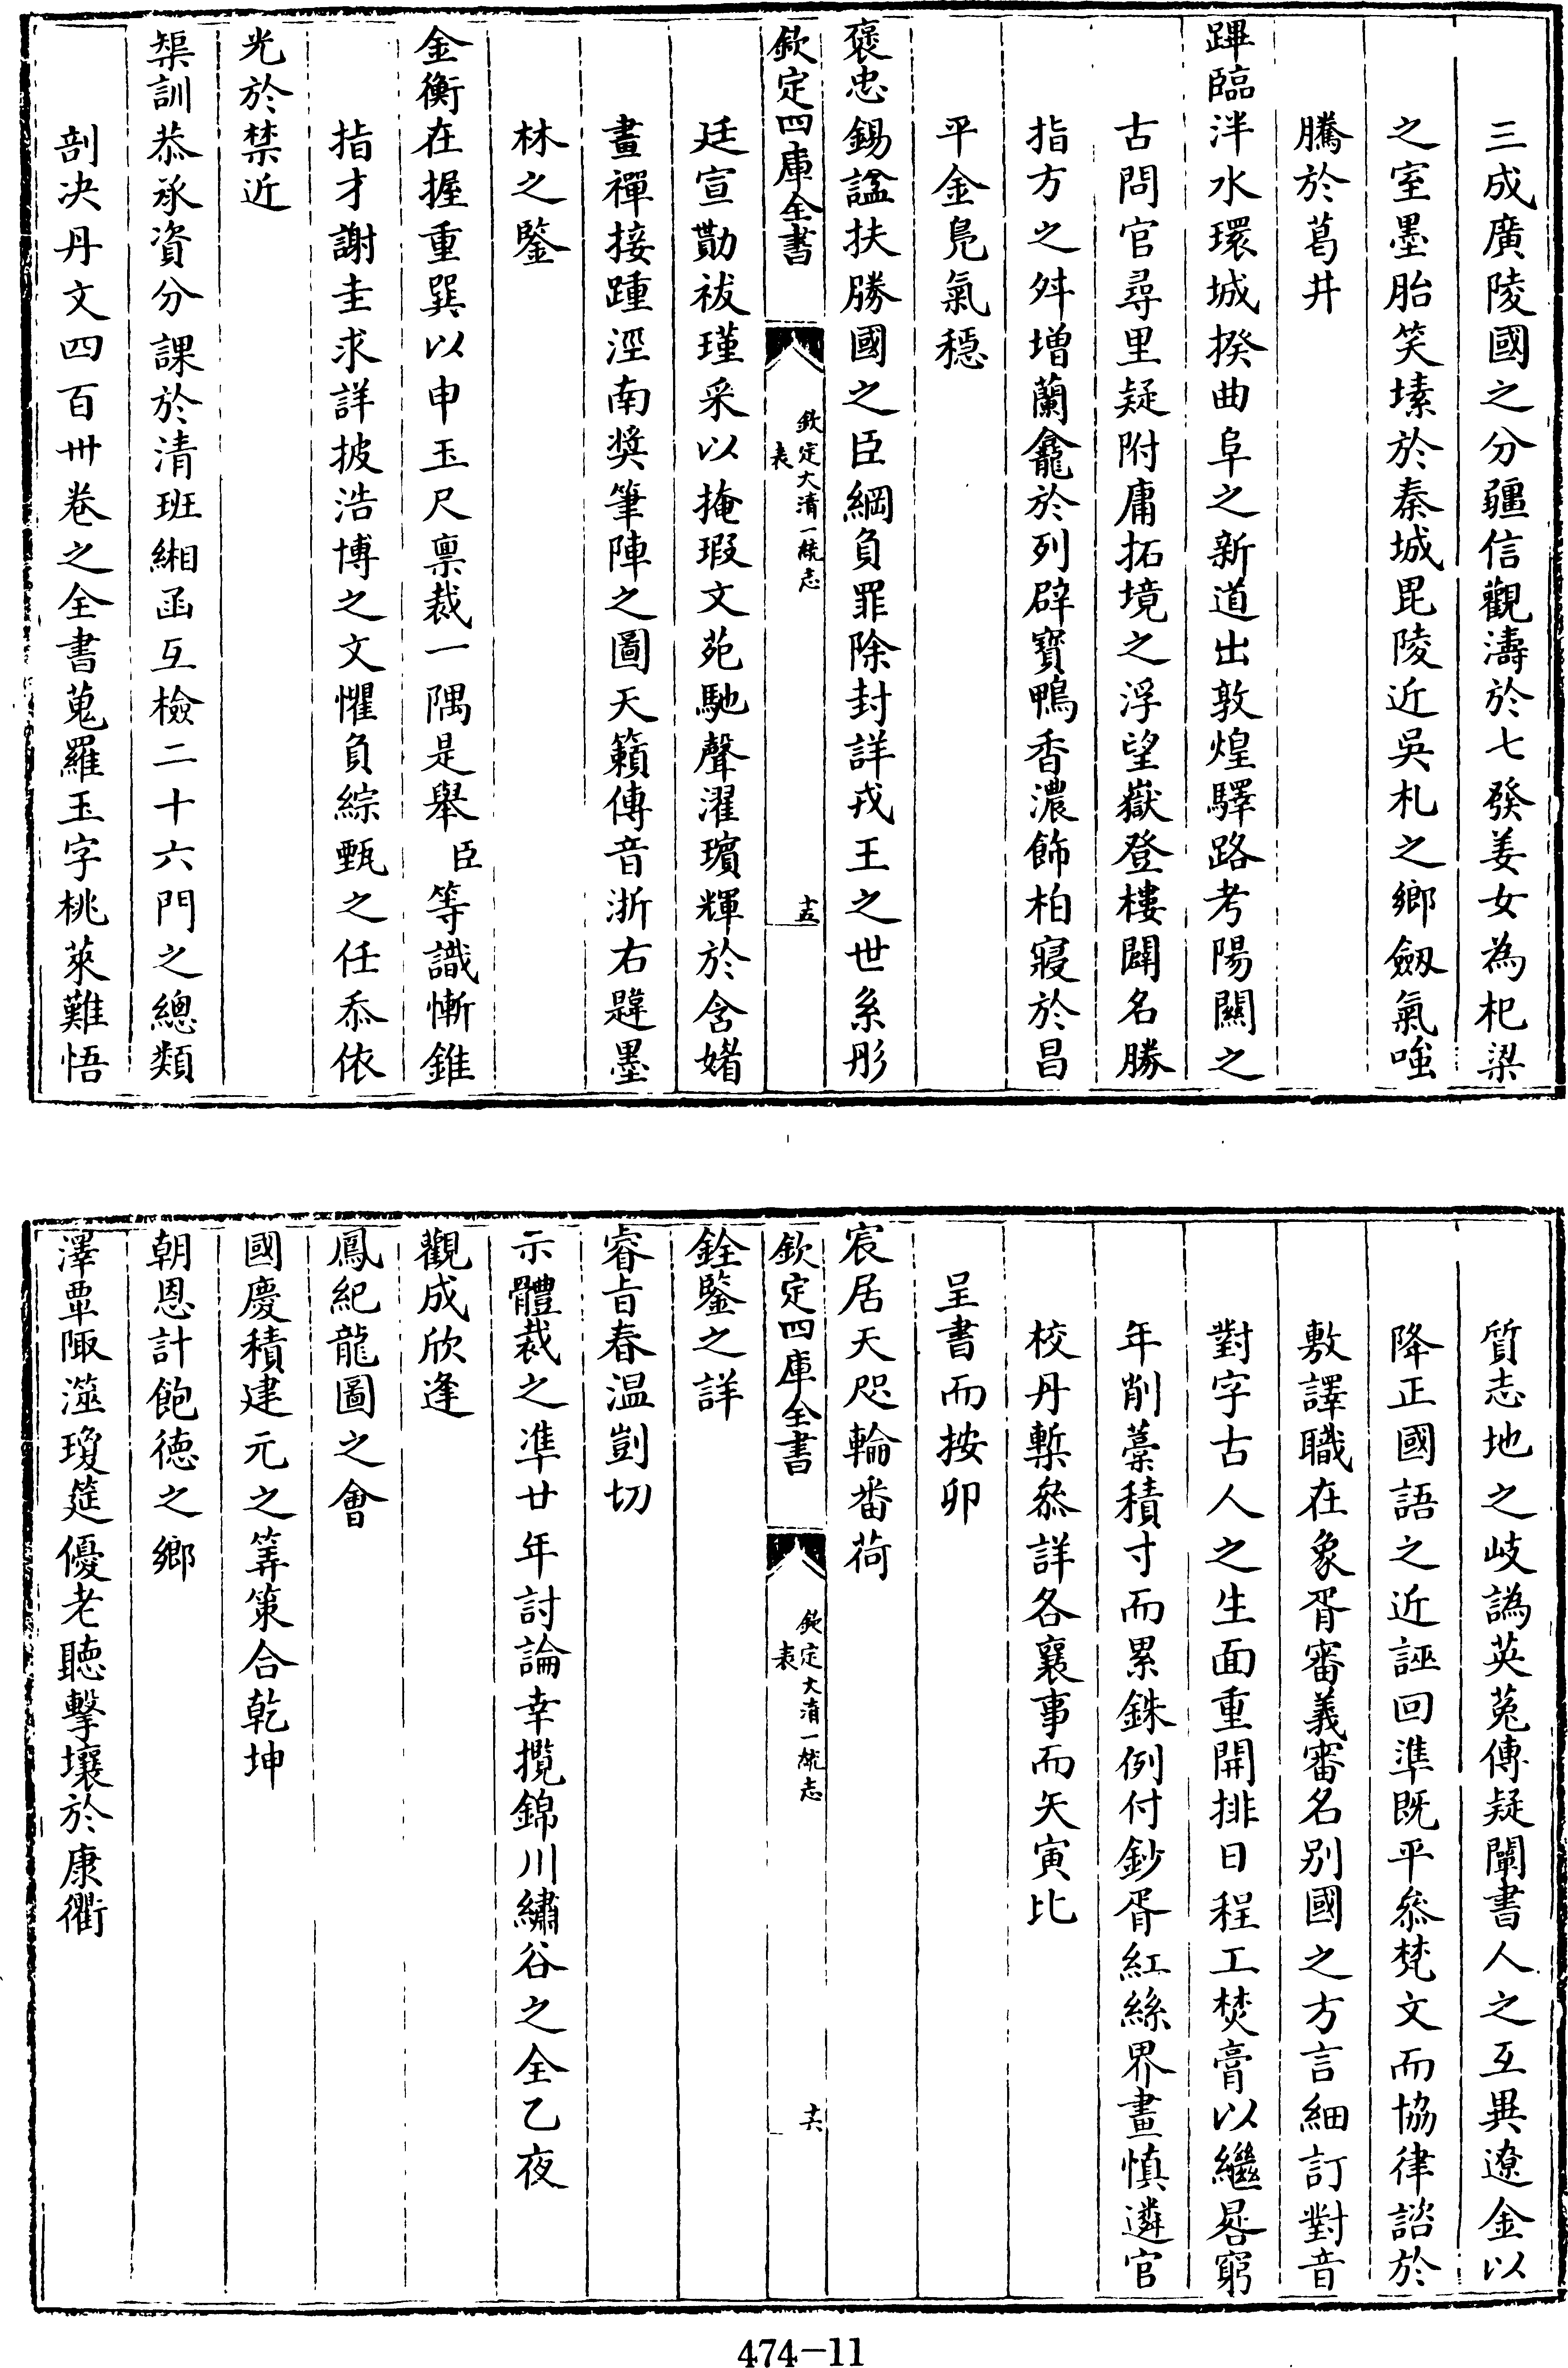 三成廣陵國之分疆信觀濤於七發姜女為杞梁
之室墨胎笑塐於秦城毘陵近吳札之鄉劔氣嗤
騰於葛井
蹕臨泮水環城揆曲阜之新道出敦煌驛路考陽關之
古問官尋里疑附庸拓境之浮望嶽登樓闢名勝
指方之舛增蘭龕於列辟寳鴨香濃飾柏寢於昌
平金鳬氣穏
褒忠錫諡扶勝國之臣綱負罪除封詳戎王之世系彤
欽定四庫全書
欽定大清一統志
表
十五
廷宣勩祓瑾采以掩瑕文苑馳聲濯璸輝於含媎
畫禪接踵涇南奬筆陣之圖天籟傳音浙右韙墨
林之鑒
金衡在握重巽以申玉尺禀裁一隅是舉臣等識慚錐
指才謝圭求詳披浩博之文懼負綜甄之任忝依
光於禁近
榘訓恭承資分課於清班緗函互檢二十六門之總類
剖决丹文四百卅卷之全書蒐羅玉字桃萊難悟
質志地之岐譌英莵傳疑闡書人之互異遼金以
降正國語之近誣回準既平叅梵文而協律諮於
敷譯職在象胥審義審名别國之方言細訂對音
對字古人之生面重開排日程工焚膏以繼晷窮
年削藁積寸而累銖例付鈔胥紅絲界畫慎遴官
校丹槧叅詳各襄事而矢寅比
呈書而按卯
宸居天咫輪番荷
欽定四庫全書
欽定大清一統志
表
十六
銓鑒之詳
睿旨春温剴切
示體裁之準廿年討論幸攬錦川繡谷之全乙夜
觀成欣逢
鳳紀龍圖之會
國慶積建元之筭策合乾坤
朝恩計飽徳之鄉
澤覃陬澨瓊筵優老聽擊壤於康衢
474-11